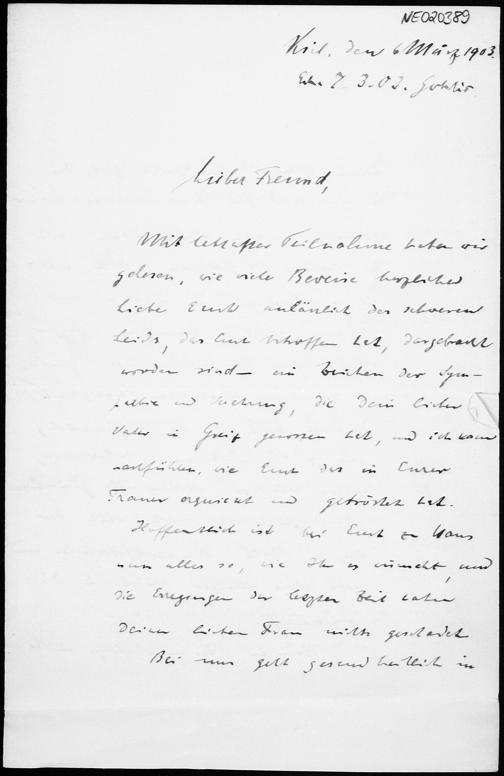 NEO20389
Kiel, den 6 März 1903.
7.3.03.
Lieber Freund,
Mit lebhafter Teilnahme haben wir
gelesen, wie viele Beweise herzlicher
Liebe Euch anläßlich des schweren
Leids, das Euch betroffen hat, dargebracht
worden sind – ein Zeichen der Sym-
pathie und Achtung, die Dein lieber
Vater in Greiz genossen hat, und ich kann
nachfühlen, wie Euch das in Eurer
Trauer erquickt und getröstet hat.
Hoffentlich ist bei Euch zu Haus
nun alles so, wie Ihr es wünscht, und
die Erregungen der letzten Zeit haben
Deiner lieben Frau nichts geschadet
Bei uns geht gesundheitlich in